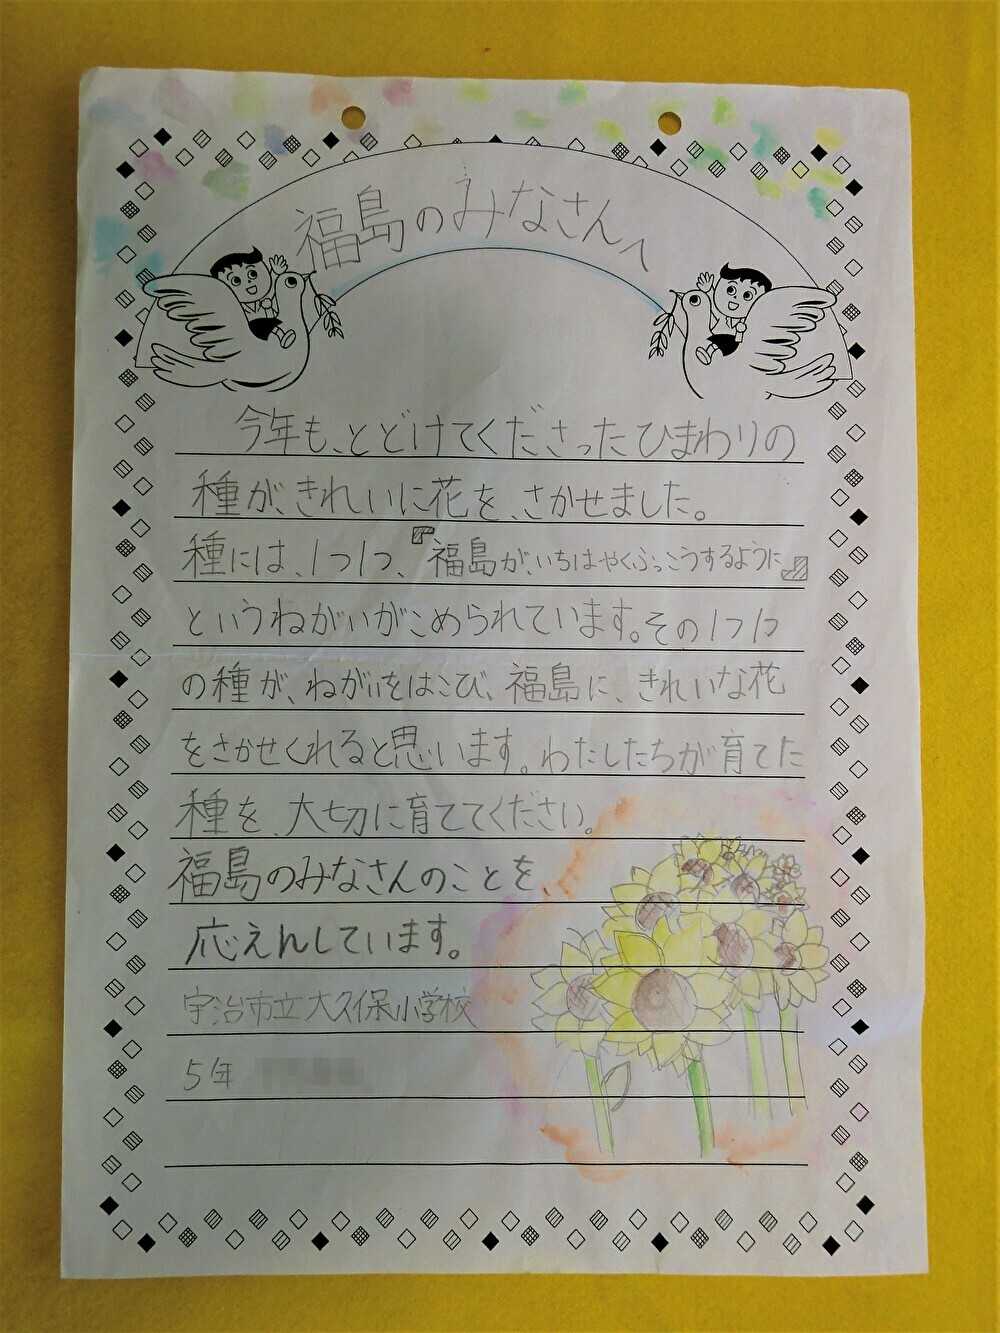 福島のみなさんへ
今年も、とどけてくださったひまわりの
種が、きれいに花を、さかせました。
種には、1つ1つ、『福島が、いちはやくふっこうするように』
というねがいがこめられています。その1つ1つ
の種が、ねがいをはこび、福島に、きれいな花
をさかせくれると思います。わたしたちが育てた
種を、大切に育ててください。
福島のみなさんのことを、
応えんしています。
宇治市立大久保小学校
5年